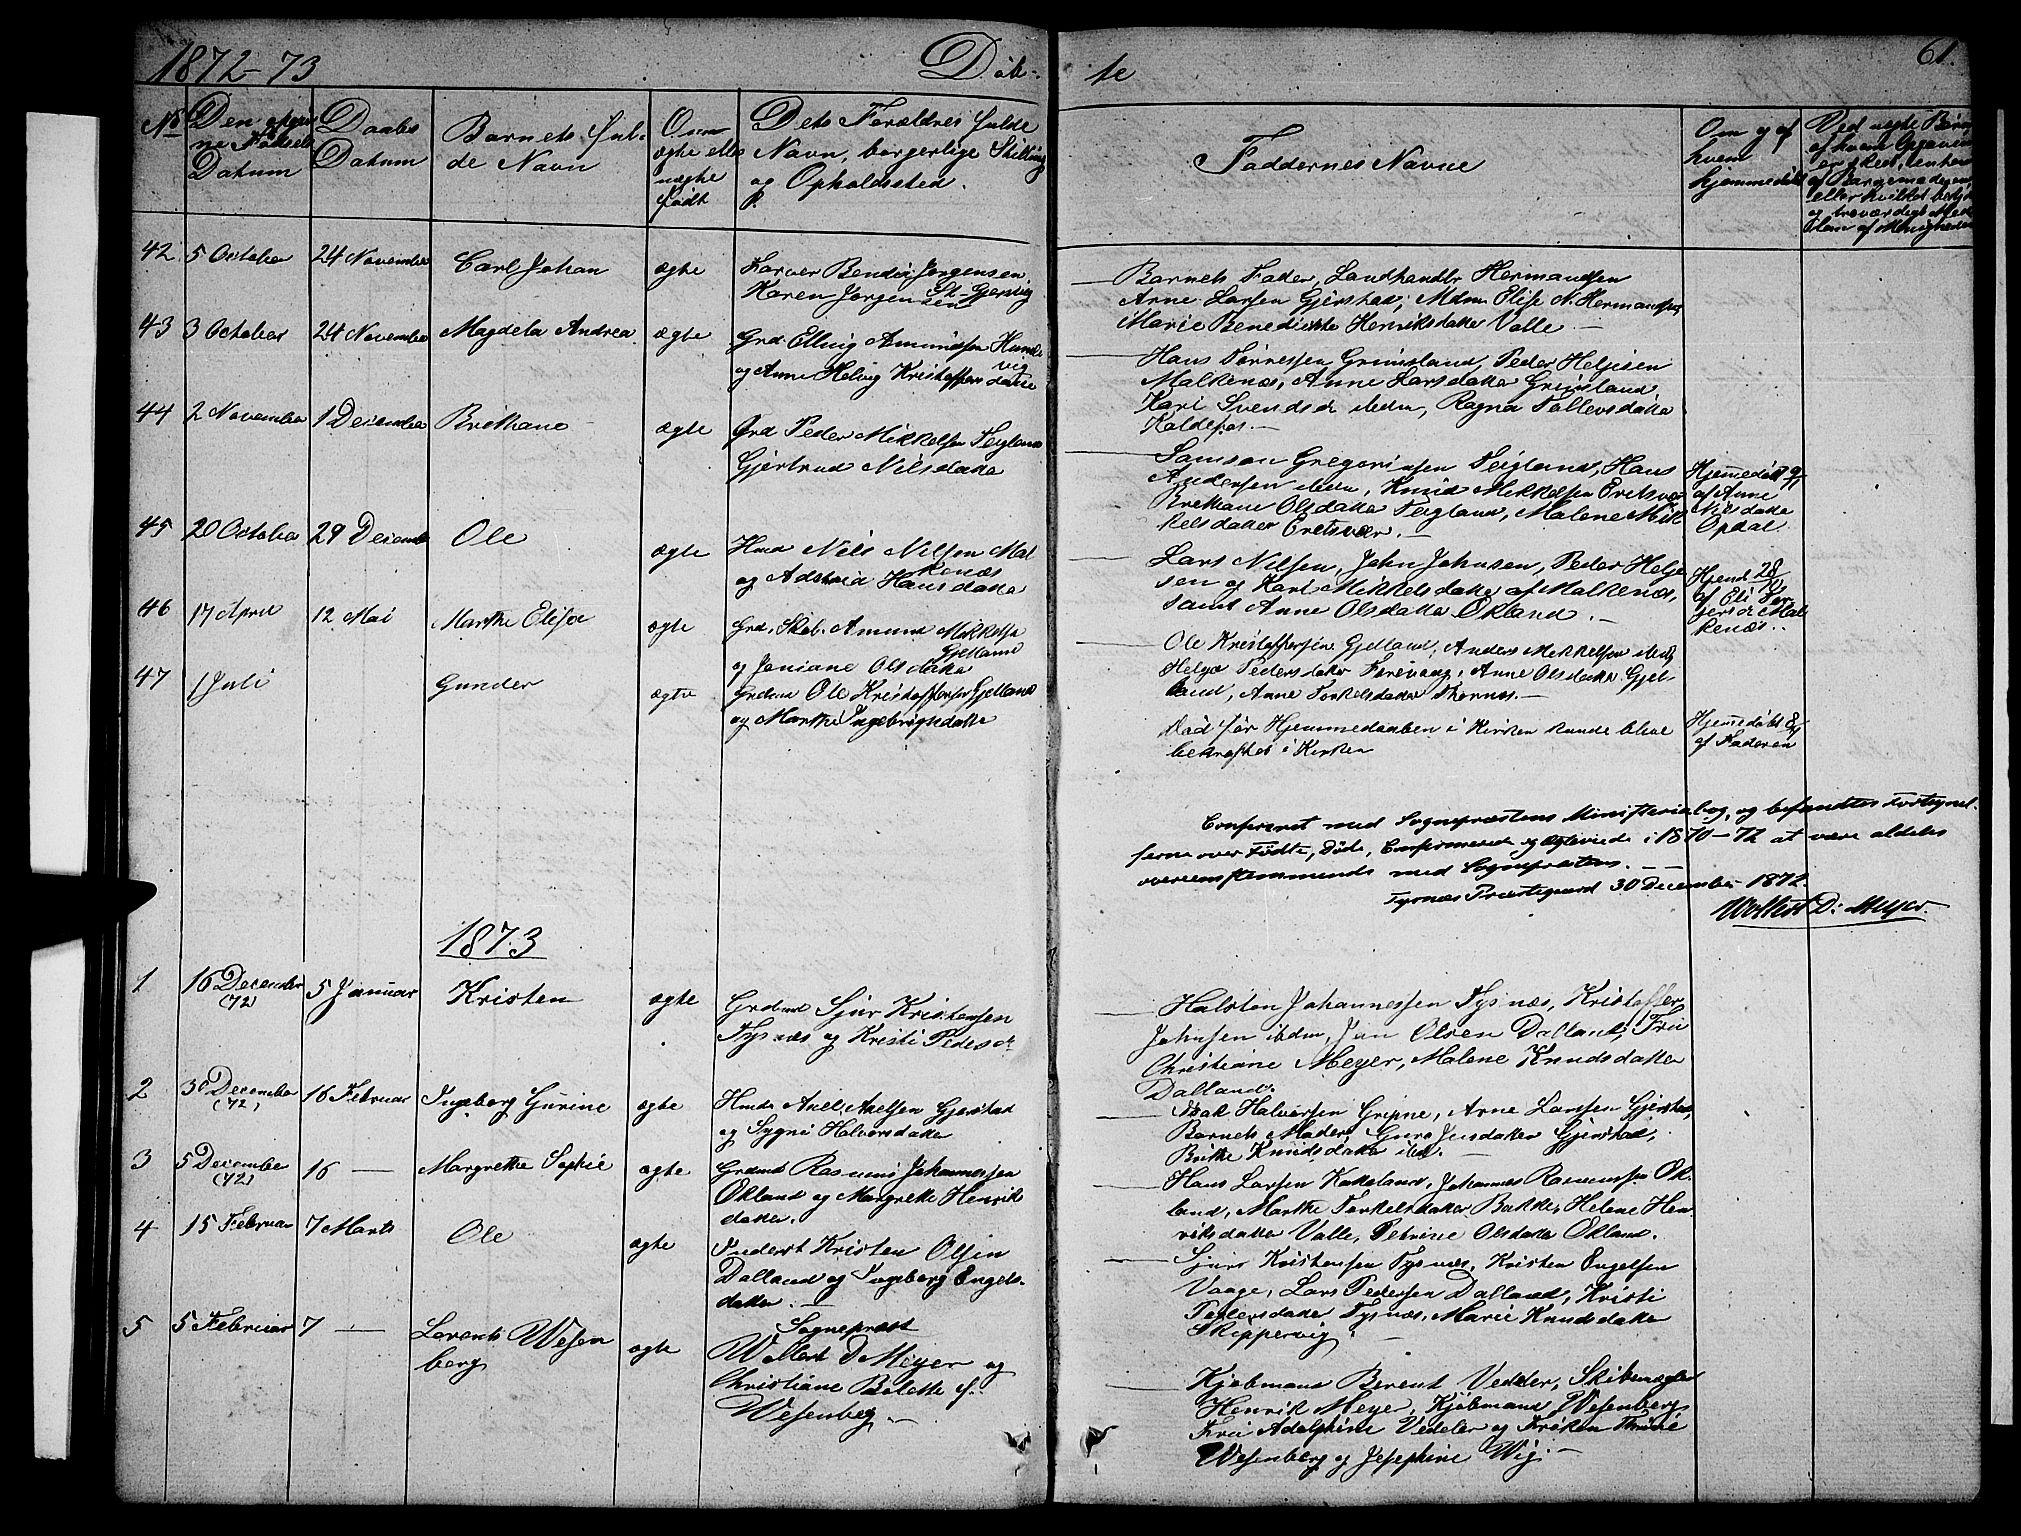 1872-73
Døb-
te
61.
No
Den
Fødsels
Datum
Daabs
Datum
Barnets ful-
de Navn
Om
ægte eller
uægte
født
Dets Forældres fulde
Navn, borgerlige Stilling
og Opholdssted.
Faddernes Navne
Om og af
hvem
hjemmedøbt
Ved uægte Børn
42 5 October 24 November Carl Johan ægte Farver Bendix Jørgensen
Karen Jørgensen
Barnets Fader, Landhandlr Hermandsen
Arne Larsen Gjerstad, Mdm Elise N. Hermandsen
Marie Benedikte Henriksdatter Valle. —
43 3 October 24 November Magdela Andrea ægte Grd Elling Amundsen Hunde
vig
og Anne Helvig Kristoffersdatter
Hans Tørressen Grimsland, Peder Helgesen
Malkenæs, Anne Larsdatter Grimsland
Kari Svendsdr ibidm, Ragna Tollevsdatter
Koldepos. —
44 2 November 1 December Brithane ægte Grd Peder Mikkelsen Teigland
Gjertrud Nilsdatter
Samson Gregoriussen Teigland, Hans
Andersen ibidm, Knud Mikkelsen Eretsvær
Brithane Olsdatter Teigland, Malene Mik
kelsdatter Eretsvær. —
Hjemmedøbt 9/11
af Anne
Nilsdatter
Opdal
45 20 October 29 December Ole ægte Hmd Nils Nilsen Mal
kenæs
og Adelheid Hansdatter
Lars Nilsen, John Johnsen, Peder Helge
sen og Kari Mikkelsdatter af Malkenæs,
samt Anne Olsdatter Økland. —
Hjemd 28/10
af Eli
Mal
kenæs.
46 17 April 12 Mai Marthe Elise ægte Grd. Skol. Amund Mikkelsen
Gjelland
og Janiane Olsdatter
Ole Kristoffersen Gjelland, Anders Mikkelsen ibidm
Helga Pedersdatter, Anne Olsdatter Gjel-
land, Anne Torkelsdatter Thornes. —
47 1 Juli Gunder ægte Grdmd Ole Kristoffersen Gjelland
og Marthe Ingebrigtsdatter
Død før Hjemmedaaben i Kirken kunde blive
bekræftet i Kirken
Hjemmedøbt 8/7
af Faderen
Confereret med Sognepræstens Ministerialbog, og befandtes Fortegnel-
serne over Fødte, Døde, Confirmerede og Egteviede i 1870-72 at være aldeles
overensstemmende med Sognepræstens. —
Tysnæs Præstegaard 30 December 1872.
Wollert D: Meyer.
1873
1 16 December (72) 5 Januar Kristen ægte Grdmd Sjur Kristensen
Tysnæs og Kristi Pedersdr
Halsten Johannessen Tysnæs, Kristoffer
Johnsen ibdm, Jan Olsen Dalland, Fru
Christiane Meyer, Malene Knudsdatter
Dalland.
2 30 December (72) 16 Februar Ingeborg Gurine ægte Hmd Axel Axelsen Gjerstad
og Sygni Halvorsdatter
Halvorsen Gripne, Arne Larsen Gjerstad,
Barnets Moder, Guro Jensdatter Gjerstad,
Brithe Knudsdatter ibdm. —
3 5 December (72) 16 — Margrethe Sophie ægte Grdmd Rasmus Johannessen
Økland og Margrethe Henriks
datter.
Hans Larsen Kakeland, Johannes Rasmussen Øk-
land, Marthe Torkelsdatter Bakke, Helene Hen
riksdatter Valle, Petrine Olsdatter Økland.
4 15 Februar 7 Marts Ole ægte Inderst Kristen Olsen
Dalland og Ingeborg Engels-
datter. —
Sjur Kristensen Tysnæs, Kristen Engelsen
Vaage, Lars Pedersen Dalland, Kristi
Pedersdatter Tysnæs, Marie Knudsdatter
Skippervig.
5 5 Februar 7 — Lorents Wesen
berg ægte Sognepræst
Wollert D Meyer og
Christiane Bolette f.
Wesenberg. —
Kjøbmand Berent Vedeler, Skibsmægler
Henrik Meyer, Kjøbmand Wesenberg
Fru Adolphine Vedeler og Frøken Thrine
Wesenberg og Josephine Wig. —